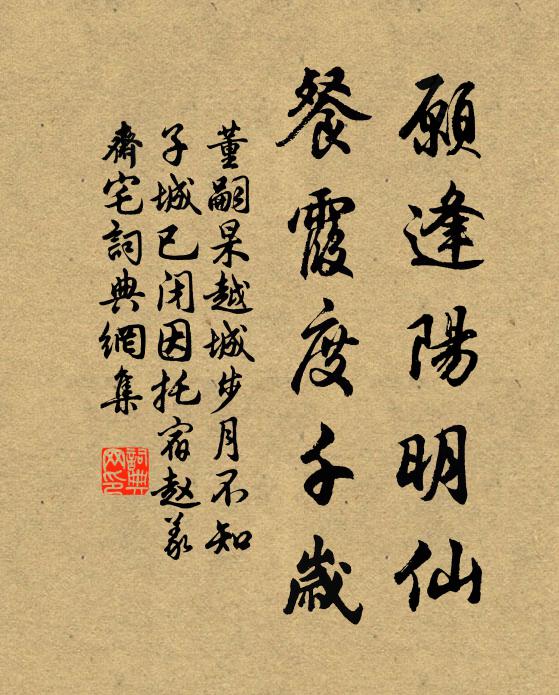 願逢陽明仙
餐霞度千歲
董嗣杲越城步月不知
子城已闭因托宿赵義
齋宅詞典網集
詞典网印